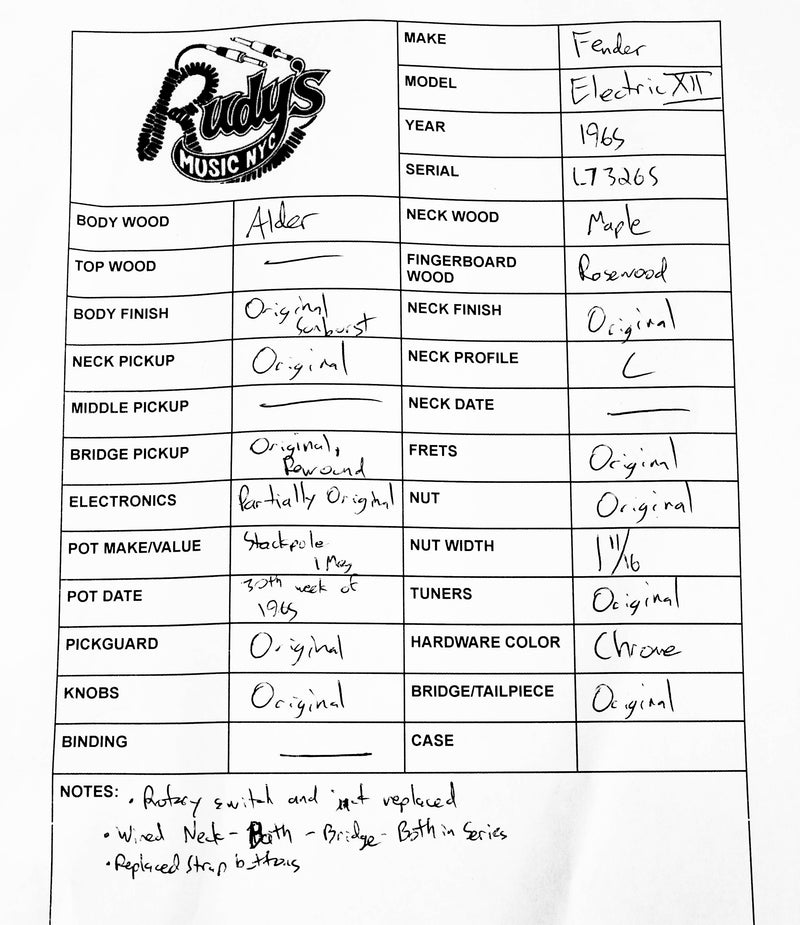 Rudy's
MUSIC NYC
MAKE Fender
MODEL Electric XII
YEAR 1965
SERIAL L73265
BODY WOOD Alder
NECK WOOD Maple
TOP WOOD —
FINGERBOARD WOOD Rosewood
BODY FINISH Original Sunburst
NECK FINISH Original
NECK PICKUP Original
NECK PROFILE C
MIDDLE PICKUP —
NECK DATE —
BRIDGE PICKUP Original, Rewound
FRETS Original
ELECTRONICS Partially Original
NUT Original
POT MAKE/VALUE Stackpole 1 Meg
NUT WIDTH 1 11/16
POT DATE 30th week of 1965
TUNERS Original
PICKGUARD Original
HARDWARE COLOR Chrome
KNOBS Original
BRIDGE/TAILPIECE Original
BINDING —
CASE
NOTES: • Rotary switch and replaced
• Wired Neck - Both - Bridge - Both in Series
• Replaced Strap buttons